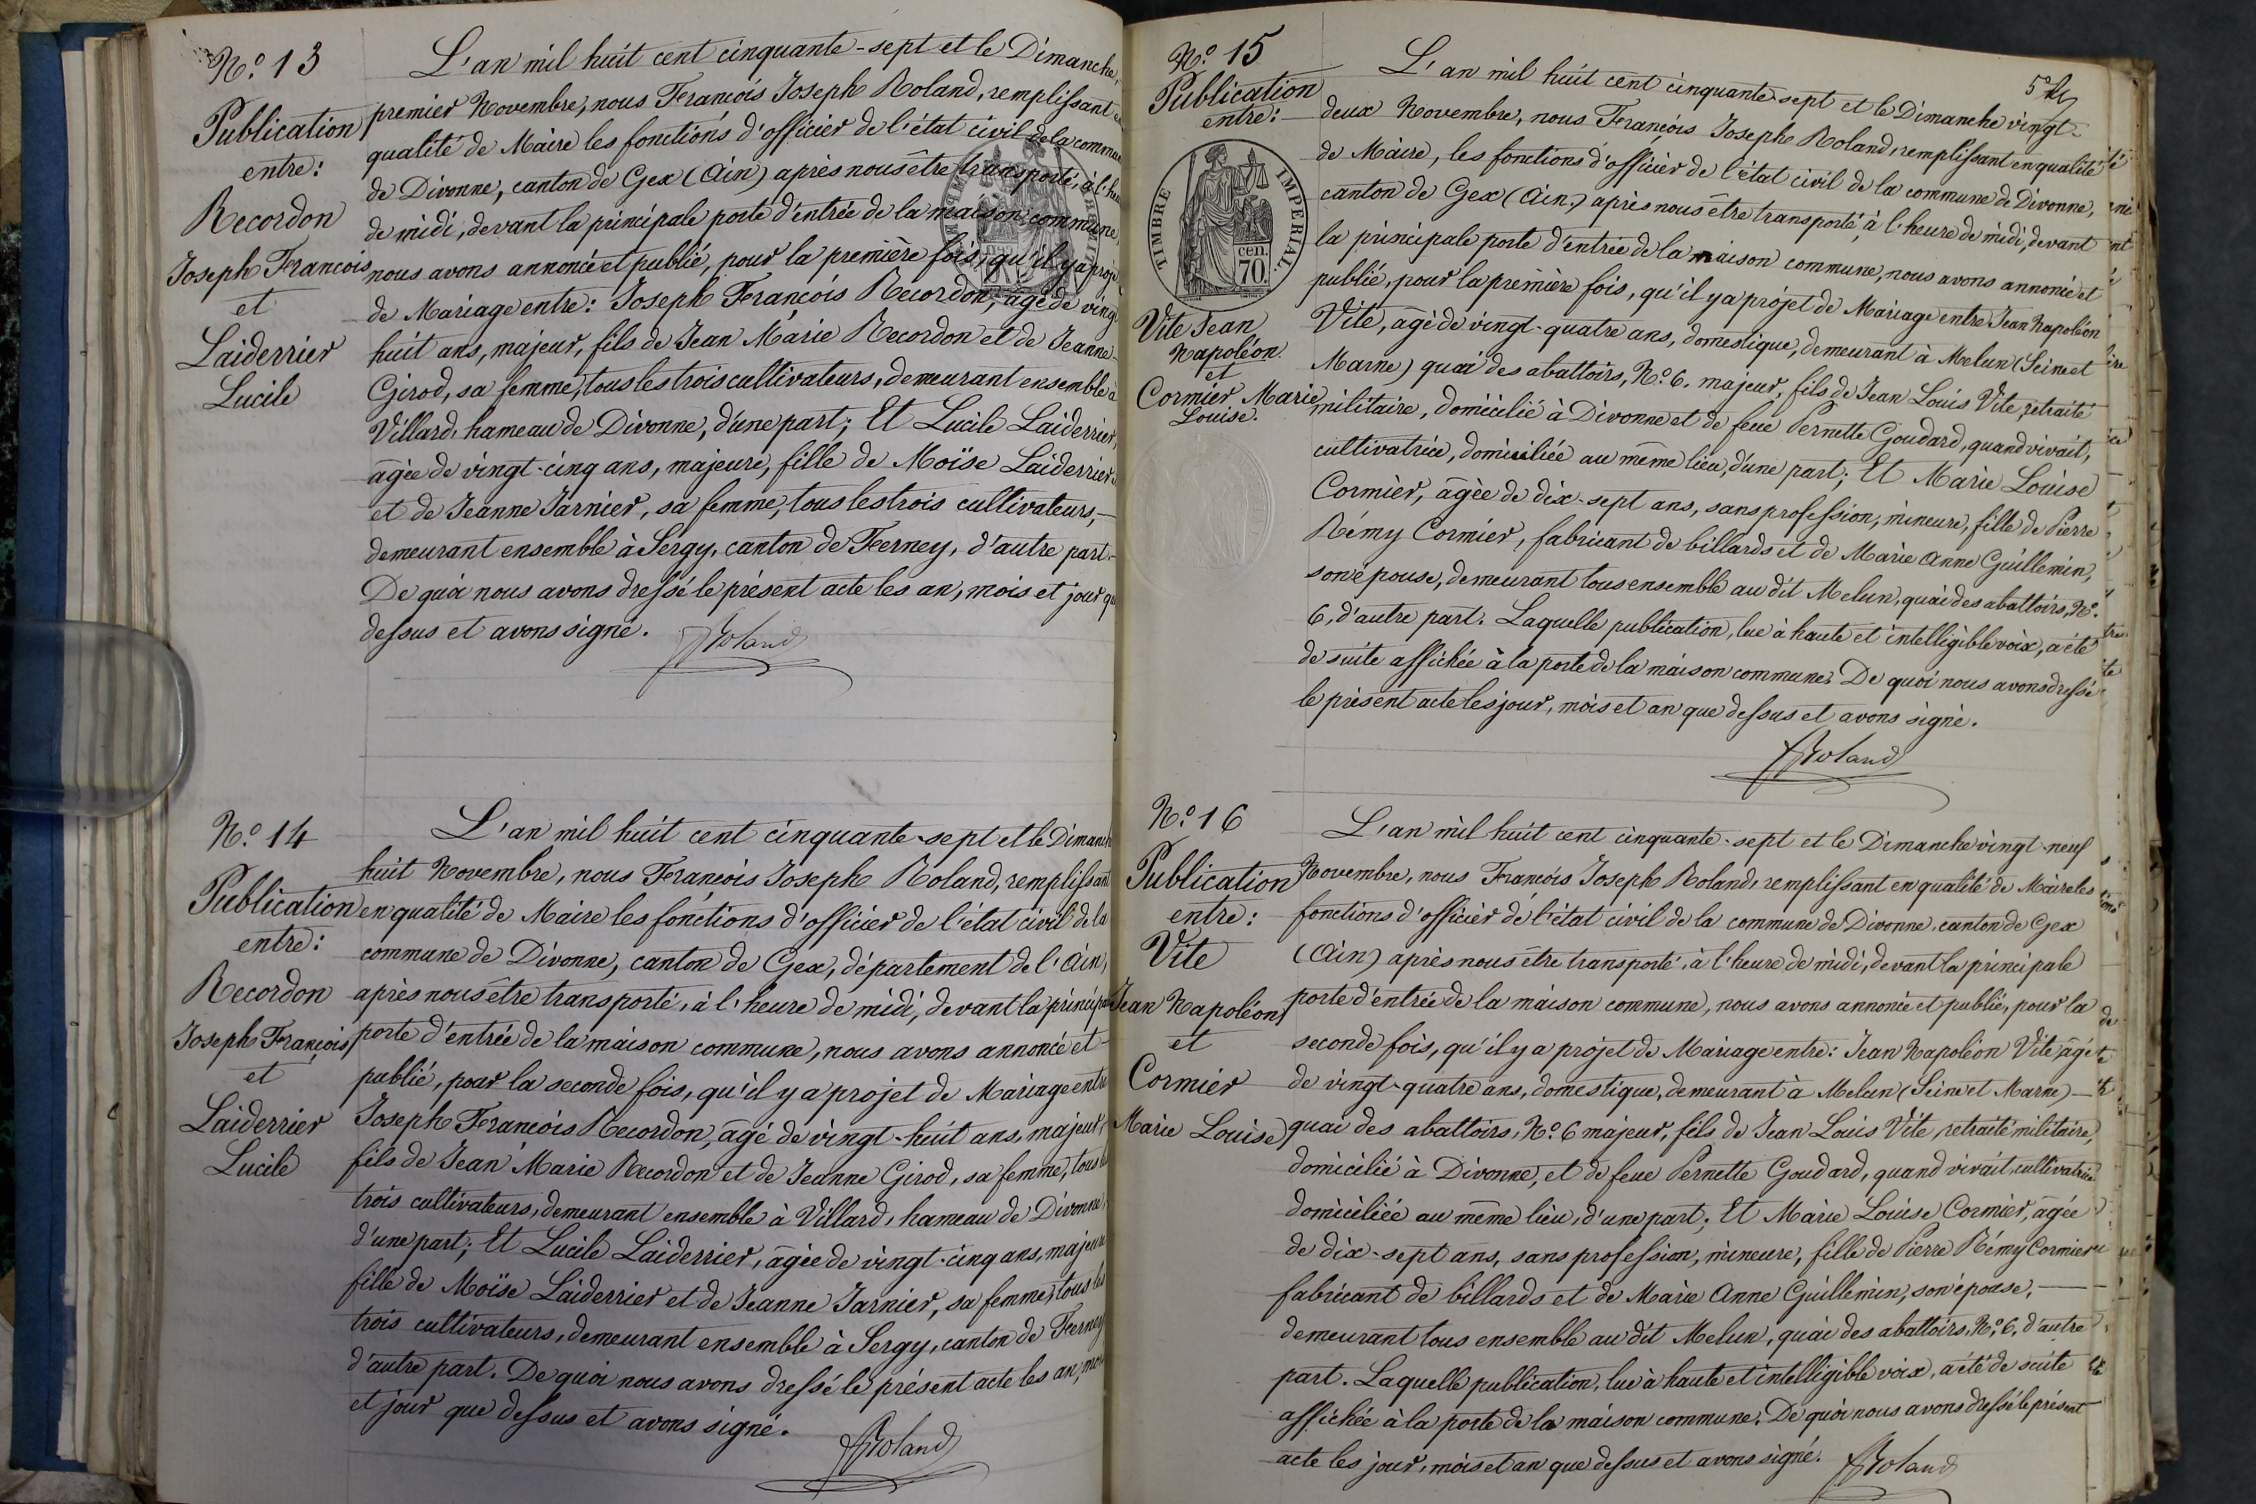 N.o 13
Publication
entre:
Recordon
Joseph François
et
Laiderrier
Lucile
L'an mil huit cent cinquante-sept et le Dimanche,
premier Novembre, nous François Joseph Roland, remplissant
qualité de Maire les fonctions d'officier de l'état civil de la commu
de Divonne, canton de Gex (Ain) après nous être transporté, à l'heu
de midi, devant la principale porte d'entrée de la maison commune
nous avons annoncé et publié, pour la première fois, qu'il y a proje
de Mariage entre: Joseph François Recordon, âgé de ving
huit ans, majeur, fils de Jean Marie Recordon et de Jeanne
Girod, sa femme, tous les trois cultivateurs, demeurant ensemble à
Villard, hameau de Divonne, d'une part; Et Lucile Laiderrier,
âgée de vingt-cinq ans, majeure, fille de Moïse Laiderrier
et de Jeanne Jarnier, sa femme, tous les trois cultivateurs,
demeurant ensemble à Sergy, canton de Ferney, d'autre part.
De quoi nous avons dressé le présent acte les an, mois et jour qu
dessus et avons signé.
Roland
N.o 14
Publication
entre:
Recordon
Joseph François
et
Laiderrier
Lucile
L'an mil huit cent cinquante-sept et le Dimanch
huit Novembre, nous François Joseph Roland, remplissant
en qualité de Maire les fonctions d'officier de l'état civil de la
commune de Divonne, canton de Gex, département de l'Ain,
après nous être transporté, à l'heure de midi, devant la principa
porte d'entrée de la maison commune, nous avons annoncé et
publié, pour la seconde fois, qu'il y a projet de Mariage entre
Joseph François Recordon, âgé de vingt-huit ans, majeur,
fils de Jean Marie Recordon et de Jeanne Girod, sa femme, tous les
trois cultivateurs, demeurant ensemble à Villard, hameau de Divonne,
d'une part; Et Lucile Laiderrier, âgée de vingt-cinq ans, majeure
fille de Moïse Laiderrier et de Jeanne Jarnier, sa femme, tous les
trois cultivateurs, demeurant ensemble à Sergy, canton de Ferney
d'autre part. De quoi nous avons dressé le présent acte les an, moi
et jour que dessus et avons signé.
Roland
N.o 15
Publication
entre:
TIMBRE IMPERIAL.
cen.
70.
Vite Jean
Napoléon.
et
Cormier Marie
Louise.
L'an mil huit cent cinquante-sept et le Dimanche vingt-
deux Novembre, nous François Joseph Roland, remplissant en qualité
de Maire, les fonctions d'officier de l'état civil de la commune de Divonne,
canton de Gex (Ain) après nous être transporté, à l'heure de midi, devant
la principale porte d'entrée de la maison commune, nous avons annoncé et
publié, pour la première fois, qu'il y a projet de Mariage entre Jean Napoléon
Vite, agé de vingt-quatre ans, domestique, demeurant à Melun (Seine et
Marne) quai des abattoirs, N.o 6. majeur, fils de Jean Louis Vite, retraité
militaire, domicilié à Divonne et de feue Pernette Goudard, quand vivait,
cultivatrice, domiciliée au même lieu, d'une part; Et Marie Louise
Cormier, agée de dix-sept ans, sans profession, mineure, fille de Pierre
Rémy Cormier, fabricant de billards et de Marie Anne Guillemin,
son épouse, demeurant tous ensemble au dit Melun, quai des abattoirs, N.o
6, d'autre part. Laquelle publication, lue à haute et intelligible voix, a été
de suite affichée à la porte de la maison commune. De quoi nous avons dressé
le présent acte les jour, mois et an que dessus et avons signé.
Roland
N.o 16
Publication
entre:
Vite
Jean Napoléon
et
Cormier
Marie Louise
L'an mil huit cent cinquante-sept et le Dimanche vingt-neuf
Novembre, nous François Joseph Roland, remplissant en qualité de Maire les
fonctions d'officier de l'état civil de la commune de Divonne, canton de Gex
(Ain) après nous être transporté, à l'heure de midi, devant la principale
porte d'entrée de la maison commune, nous avons annoncé et publié, pour la
seconde fois, qu'il y a projet de Mariage entre: Jean Napoléon Vite, âgé
de vingt-quatre ans, domestique, demeurant à Melun (Seine et Marne)
quai des abattoirs, N.o 6 majeur, fils de Jean Louis Vite, retraité militaire,
domicilié à Divonne, et de feue Pernette Goudard, quand vivait, cultivatrice
domiciliée au même lieu, d'une part; Et Marie Louise Cormier, âgée
de dix-sept ans, sans profession, mineure, fille de Pierre Rémy Cormier
fabricant de billards et de Marie Anne Guillemin, son épouse,
demeurant tous ensemble au dit Melun, quai des abattoirs, N.o 6, d'autre
part. Laquelle publication, lue à haute et intelligible voix, a été de suite
affichée à la porte de la maison commune. De quoi nous avons dressé le présent
acte les jour, mois et an que dessus et avons signé.
Roland